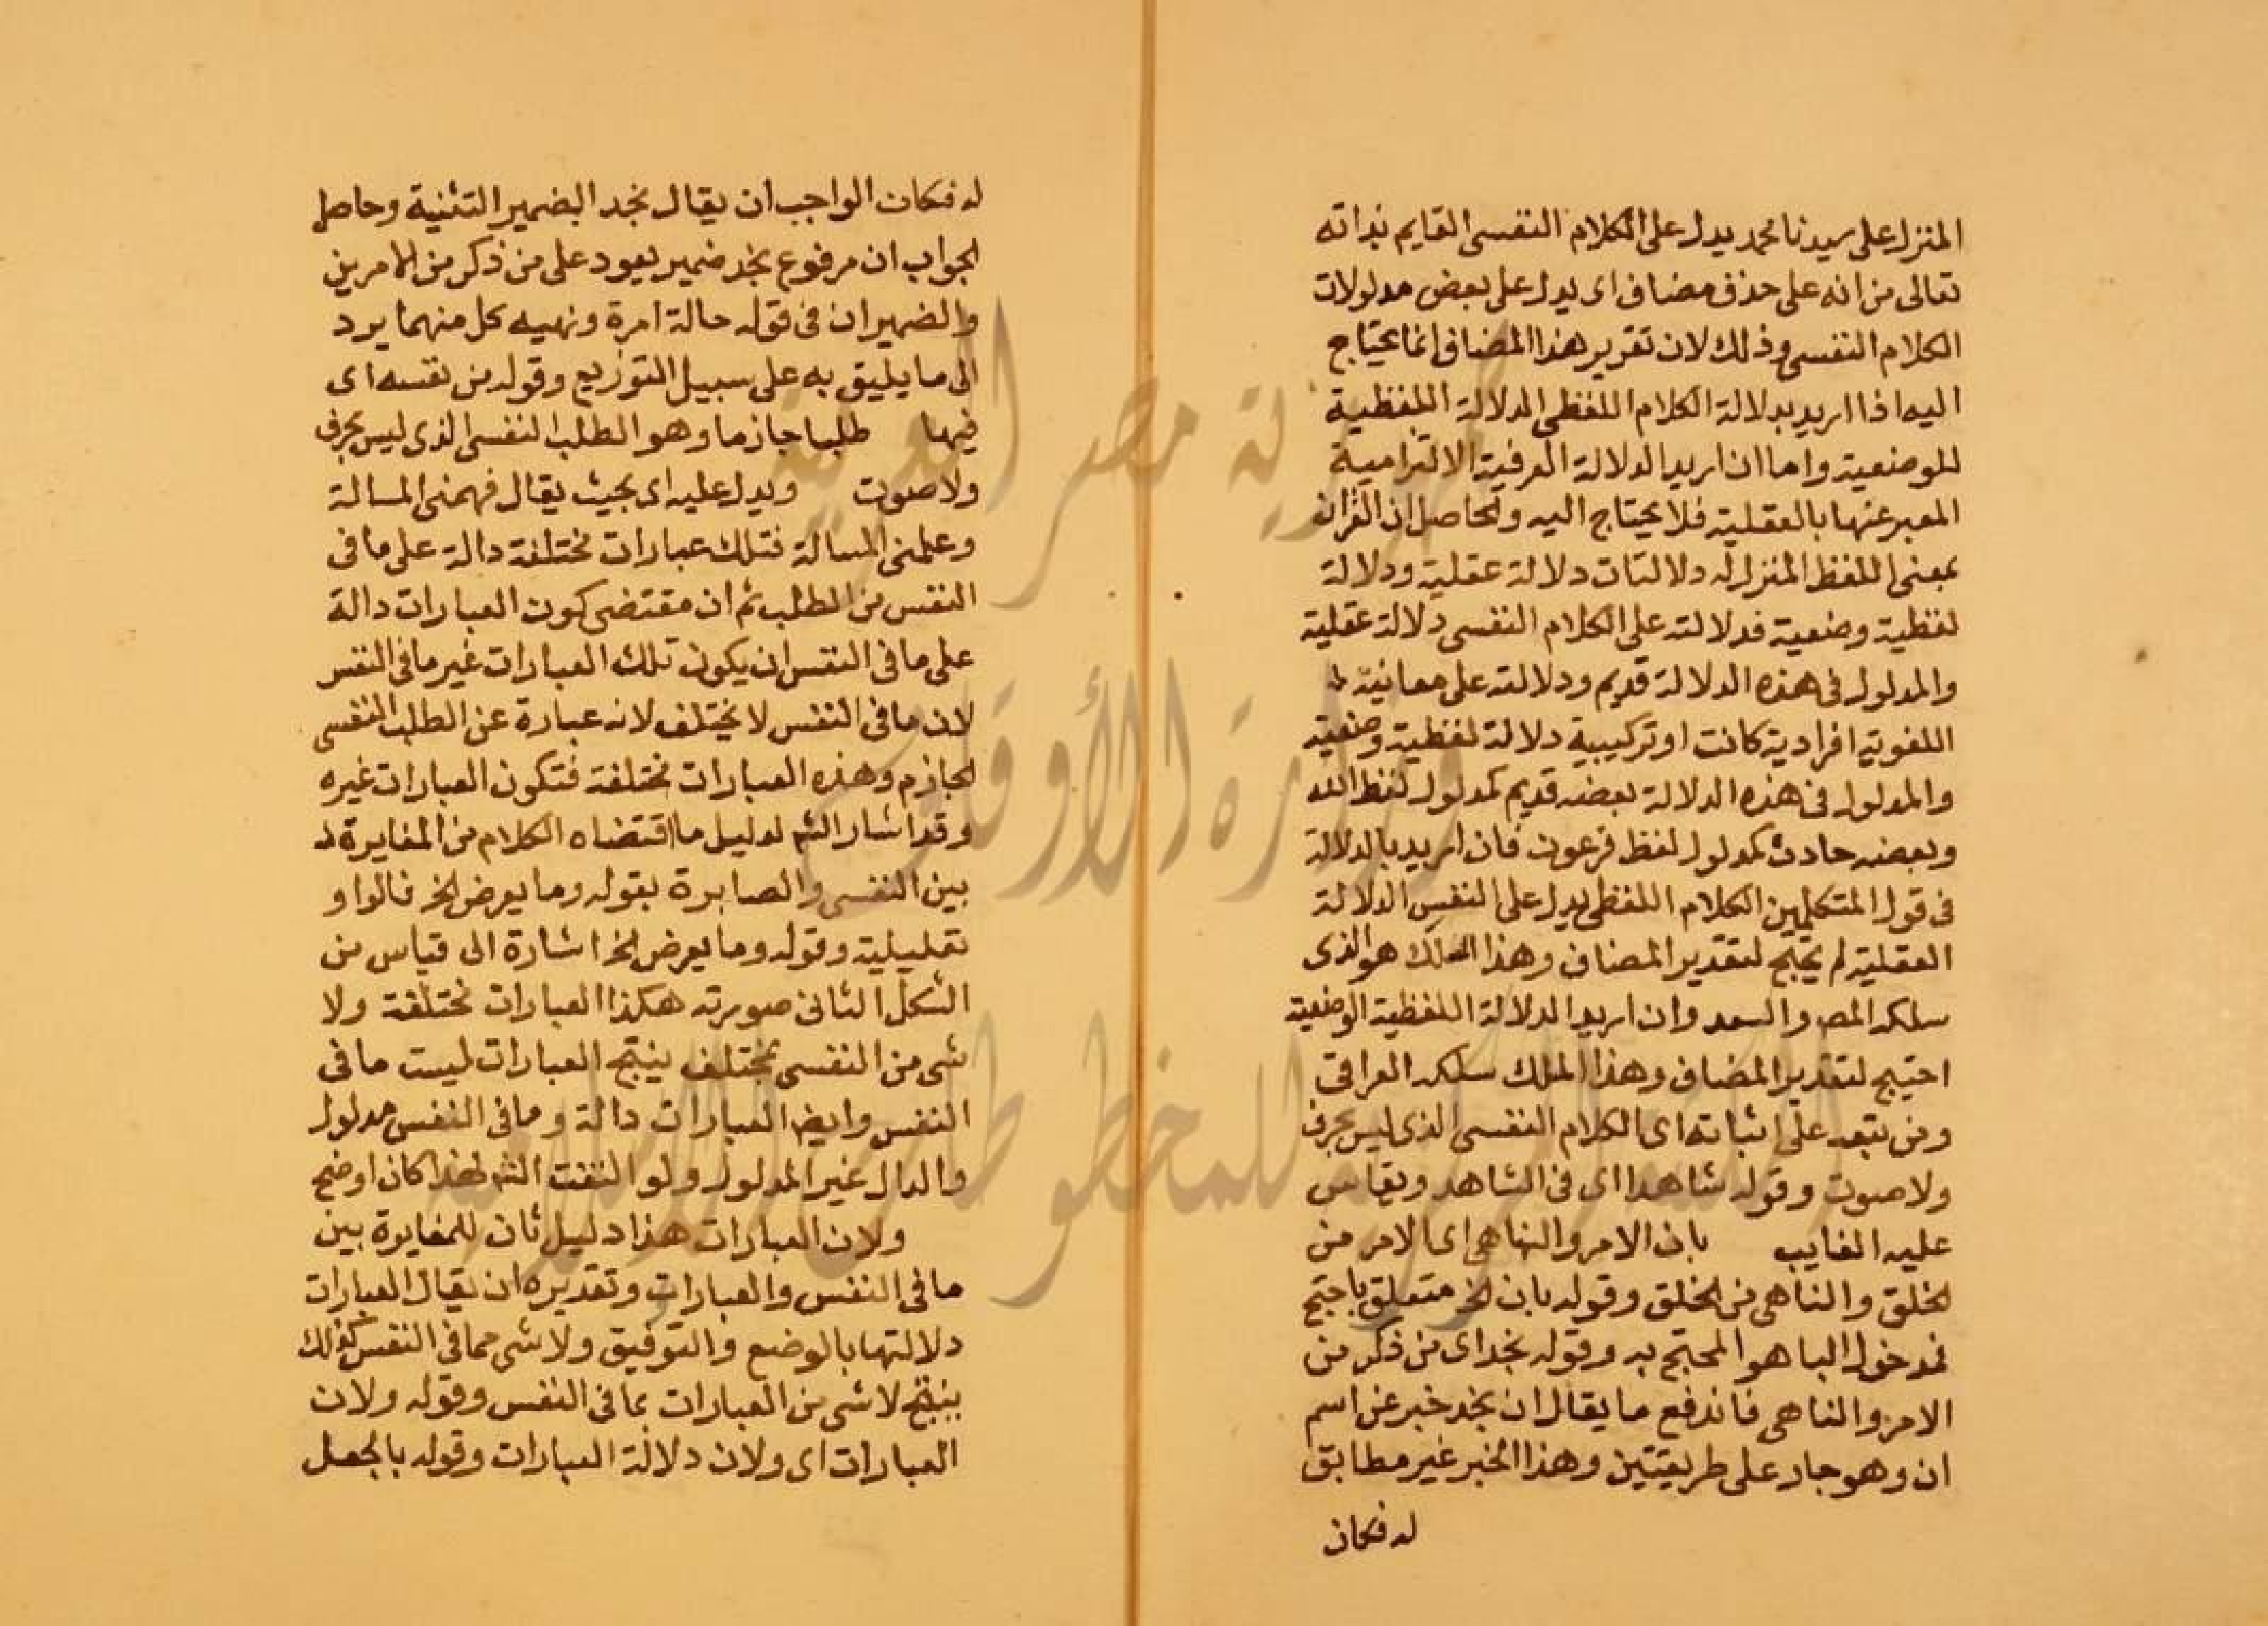 المنزل على سيدنا محمد يدل على الكلام النفسى القايم بذاته
تعالى من انه على حذف مضاف اى يدل على بعض مدلولات
الكلام النفسى وذلك لان تقرير هذا المضاف انما يحتاج
اليه اذا اريد بدلالة الكلام اللفظى الدلالة اللفظية
للوضعية واما ان اريد الدلالة العرفية الالتزامية
المعبر عنها بالعقلية فلا يحتاج اليه والحاصل ان القران
بمعنى اللفظ المنزل له دلالتان دلالة عقلية ودلالة
لفظية وضعية فدلالته على الكلام النفسى دلالة عقلية
والمدلول فى هذه الدلالة قديم ودلالته على معانيه
اللغوية افرادية كانت او تركيبية دلالة لفظية وضعية
والمدلول فى هذه الدلالة بعضه قديم كمدلول لفظ الله
وبعضه حادث كمدلول لفظ فرعون فان اريد بالدلالة
فى قول المتكلمين الكلام اللفظى يدل على النفسى الدلالة
العقلية لم يحتج لتقدير المضاف وهذا المسلك هو الذى
سلكه المص والسعد وان اريد الدلالة اللفظية الوضعية
احتيج لتقدير المضاف وهذا المسلك سلكه العراقى
ومن تبعه على اثباته اى الكلام النفسى الذى ليس بحرف
ولا صوت وقوله شاهدا اى فى الشاهد ويقاس
عليه الغايب بان الامر والناهى اى الامر من
الخلق والناهى من الخلق وقوله بان الخ متعلق باحتج
فمدخول البا هو المحتج به وقوله يجد اى من ذكر من
الامر والناهى فاندفع ما يقال ان يجد خبر عن اسم
ان وهو جار على طريقتين وهذا الخبر غير مطابق
له فكان
له فكان الواجب ان يقال يجدا بضمير التثنية وحاصل
الجواب ان مرفوع يجد ضمير يعود على من ذكر من الامرين
والضميران فى قوله حالة امره ونهيه كل منهما يرد
الى ما يليق به على سبيل التوزيع وقوله من نفسه اى
فيها طلبا جازما وهو الطلب النفسى الذى ليس بحرف
ولا صوت ويدل عليه اى بحيث يقال فهمنى المسالة
وعلمنى المسالة فتلك عبارات مختلفة دالة على ما فى
النفس من الطلب ثم ان مقتضى كون العبارات دالة
على ما فى النفس ان يكون تلك العبارات غير ما فى النفس
لان ما فى النفس لا يختلف لانه عبارة عن الطلب النفسى
الجازم وهذه العبارات مختلفة فتكون العبارات غيره
وقد اشار الشم لدليل ما اقتضاه الكلام من المغايرة
بين النفسى والصابرة بقوله وما يعرض الخ فالواو
تعليلية وقوله وما يعرض الخ اشارة الى قياس من
الشكل الثانى صورته هكذا العبارات مختلفة ولا
شى من النفسى بمختلف ينتج العبارات ليست ما فى
النفس وايض العبارات دالة وما فى النفس مدلول
والدال غير المدلول ولو التفت الشم لهذا كان اوضح
ولان العبارات هذا دليل ثان للمغايرة بين
ما فى النفس والعبارات وتقديره ان يقال العبارات
دلالتها بالوضع والتوفيق ولا شى مما فى النفس كذلك
ينتج لا شى من العبارات بما فى النفس وقوله ولان
العبارات اى ولان دلالة العبارات وقوله بالجعل
جمهورية مصر العربية
وزارة الأوقاف